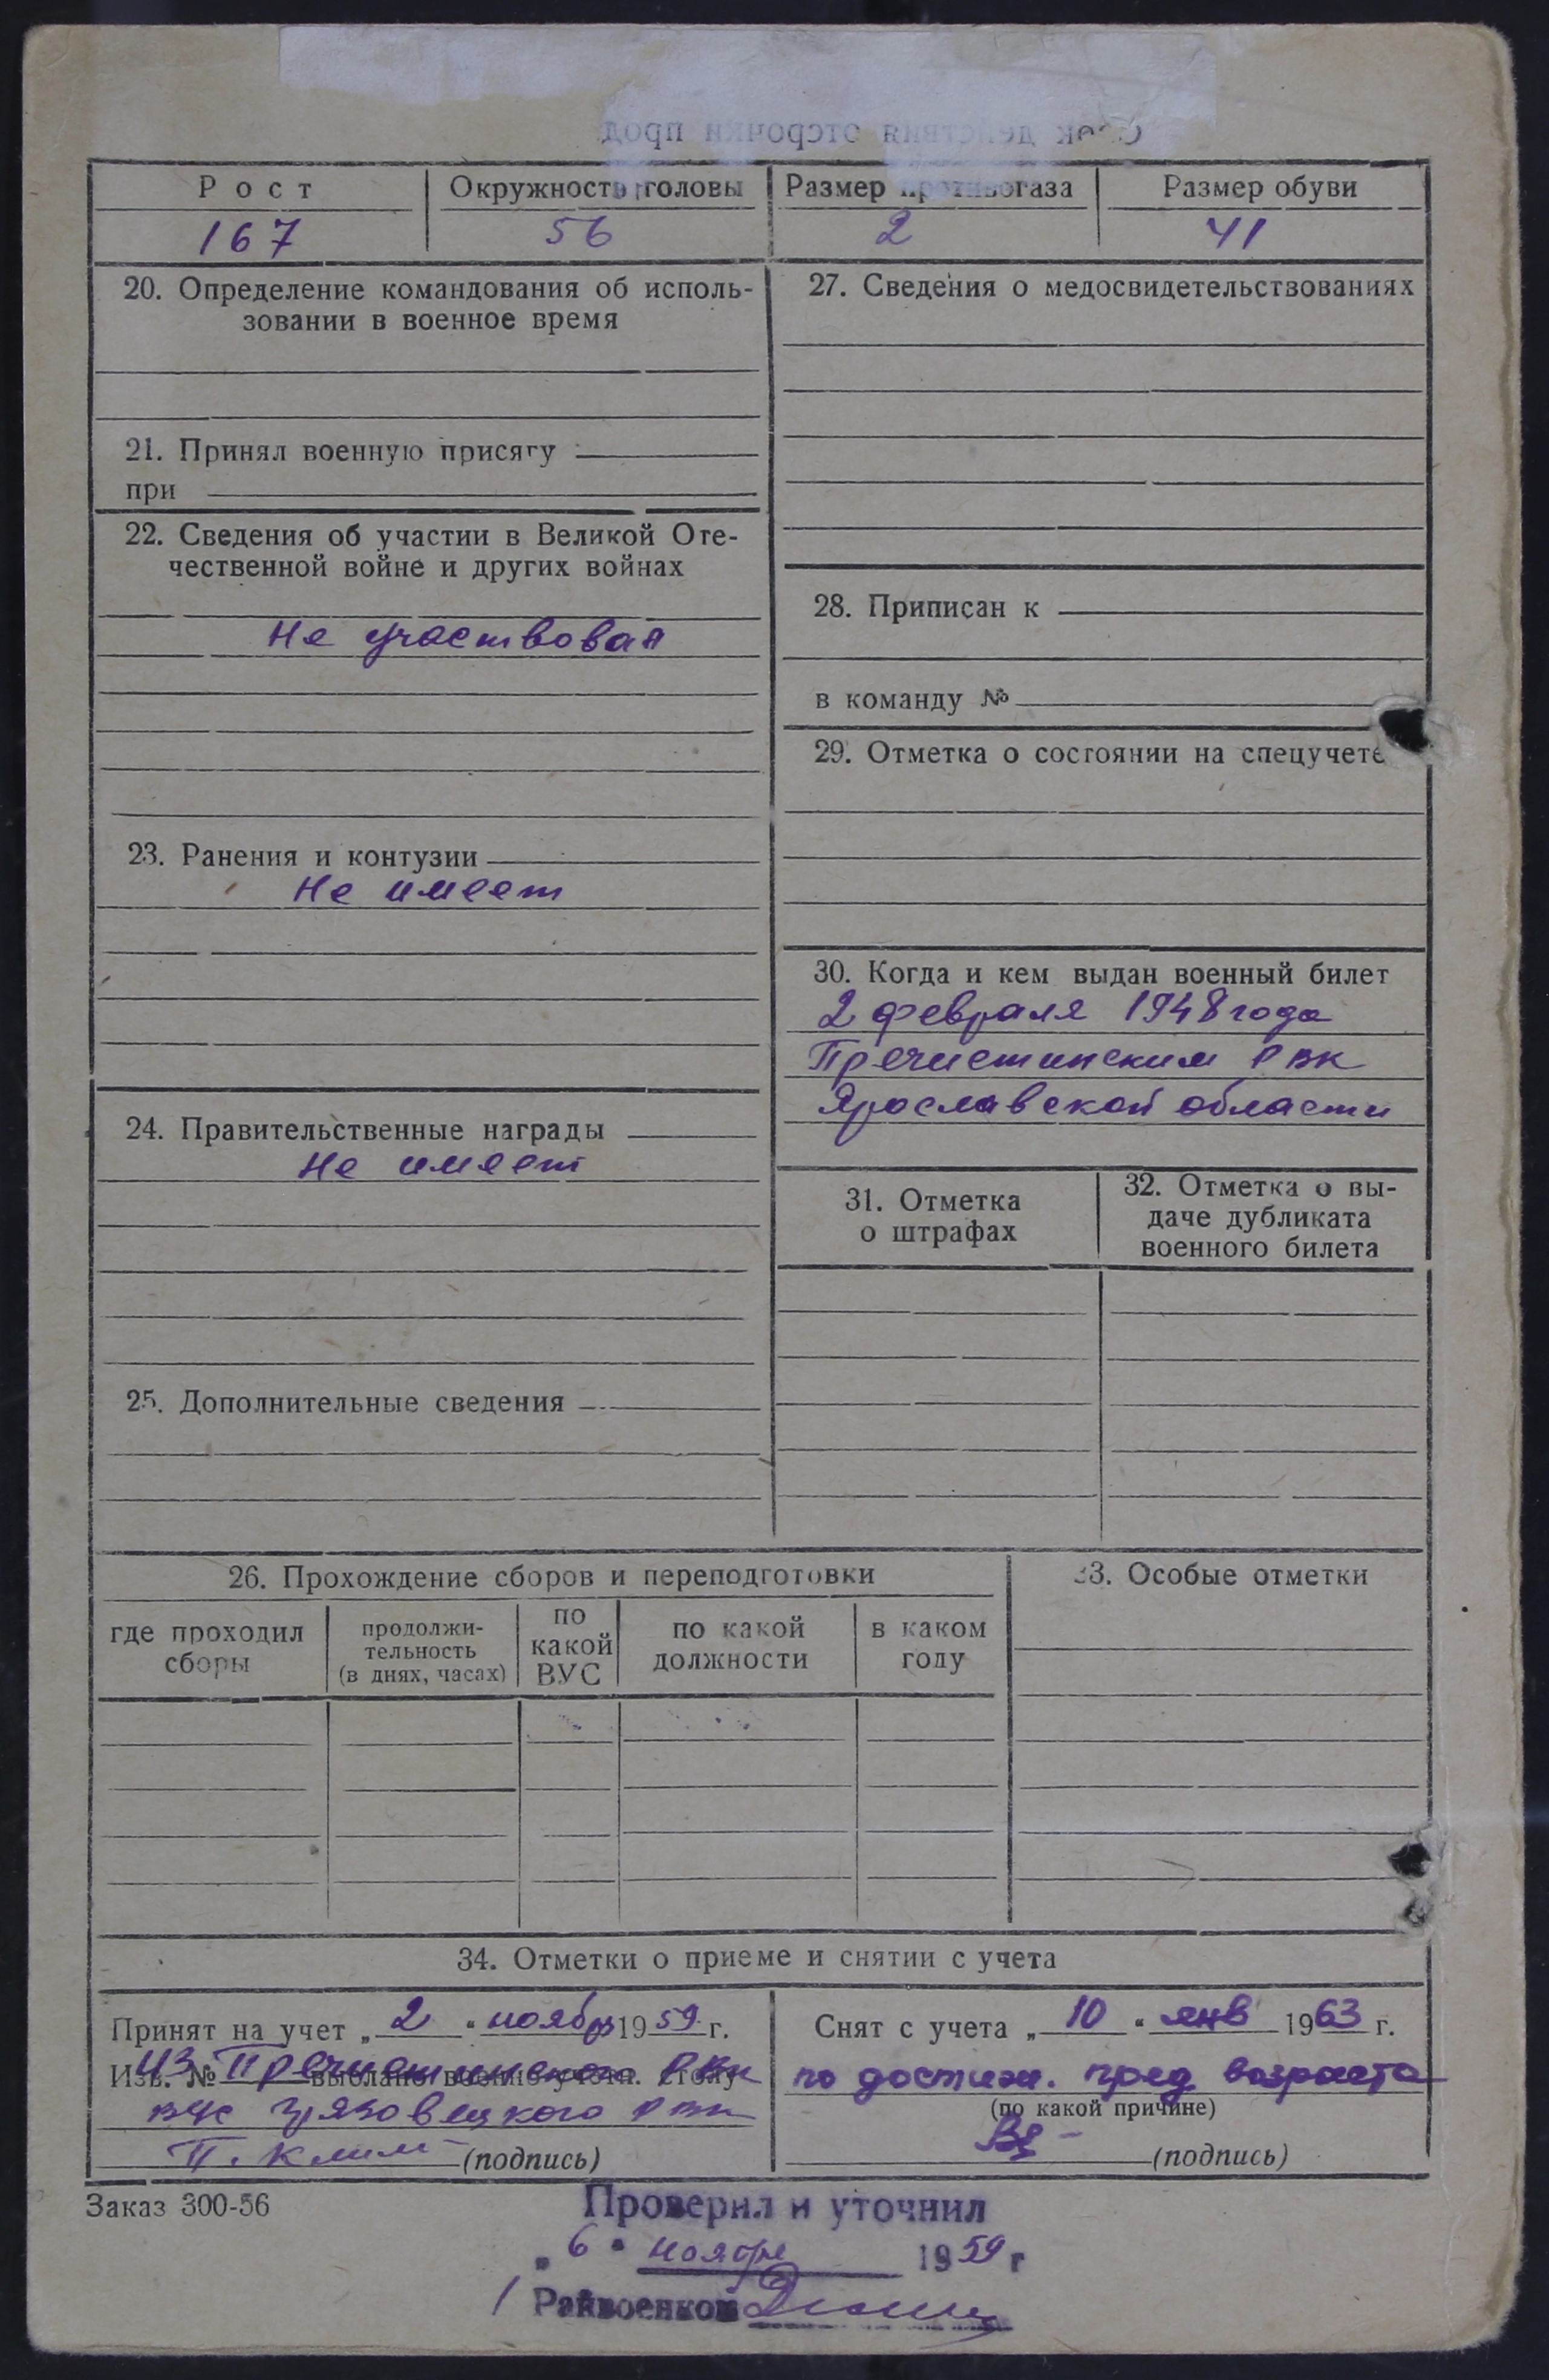 Срок действия отсрочки прод
Рост Окружность головы Размер противогаза Размер обуви
167 56 2 41
20. Определение командования об исполь-
зовании в военное время
21. Принял военную присягу
при
22. Сведения об участии в Великой Оте-
чественной войне и других войнах
Не участвовал
23. Ранения и контузии
Не имеет
24. Правительственные награды
Не имеет
25. Дополнительные сведения
27. Сведения о медосвидетельствованиях
28. Приписан к
в команду №
29. Отметка о состоянии на спецучете
30. Когда и кем выдан военный билет
2 февраля 1948 года
Пречистинским РВК
Ярославской области
31. Отметка
о штрафах
32. Отметка о вы-
даче дубликата
военного билета
26. Прохождение сборов и переподготовки
где проходил
сборы
продолжи-
тельность
(в днях, часах)
по
какой
ВУС
по какой
должности
в каком
году
33. Особые отметки
34. Отметки о приеме и снятии с учета
Принят на учет „ 2 “ ноябр 1959 г.
Изв. № выслано военно-учетн. столу
из Пречистинского РВК
Грязовецкого РВК
П. Клим (подпись)
Снят с учета „ 10 “ янв 1963 г.
по достиж. пред возраста
(по какой причине)
(подпись)
Заказ 300-56
Проверил и уточнил
„ 6 “ ноября 1959 г
Райвоенком